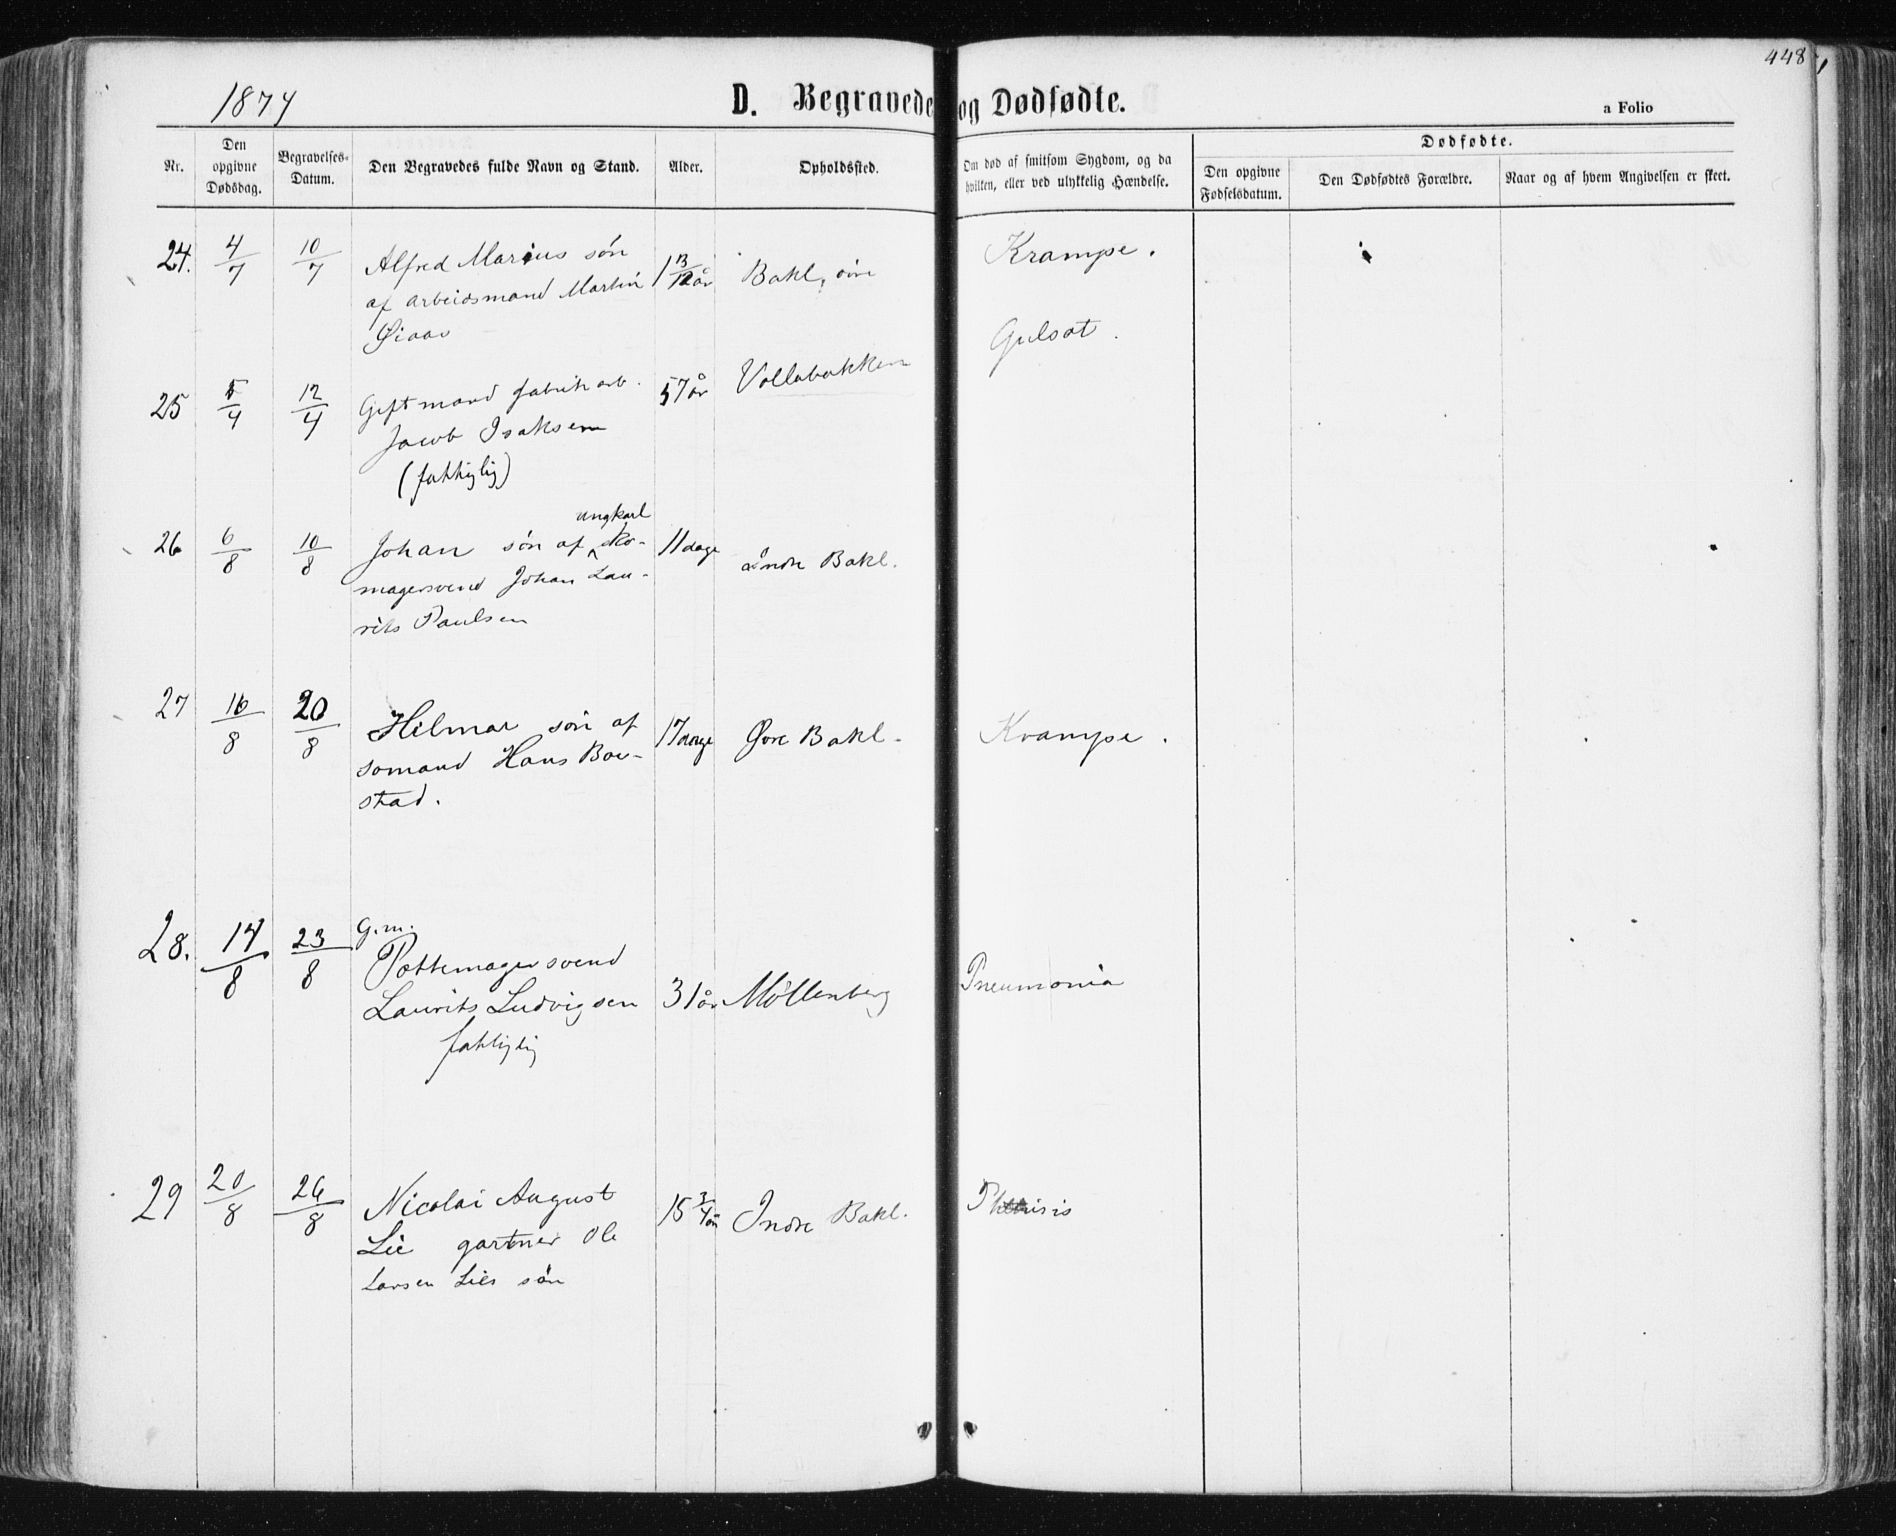 448
1874
D. Begravede og Dødfødte.
a Folio
Nr.
Den opgivne Dødsdag.
Begravelses-Datum.
Den Begravedes fulde Navn og Stand.
Alder.
Opholdssted.
Om død af smitsom Sygdom, og da hvilken, eller ved ulykkelig Hændelse.
Dødfødte.
Den opgivne Fødselsdatum.
Den Dødfødtes Forældre.
Naar og af hvem Angivelsen er skeet.
24. 4/7 10/7 Alfred Marius søn 1 år Bakl. øvre Krampe.
af arbeidsmand Martin
25 12/4 Gift mand fabrik arb. 57 år Vollabakken Gulsot.
Jacob Isaksen
(fattiglig)
ungkarl
26 6/8 10/8 Johan søn af sko- 11 dage indre Bakl.
magersvend Johan Lau-
rits Paulsen
27 16/8 20/8 Hilmar søn af 17 dage Øvre Bakl. Krampe.
somand Hans Boe-
stad.
G.m.
28. 14/8 23/8 Pottemagersvend
Laurits Ludvigsen 31 år Møllenberg Pneumonia
fattiglig
29 20/8 26/8 Nicolai August 15 3/4 år Indre Bakl. Phthisis
Lie gartner Ole
Larsen Lies søn